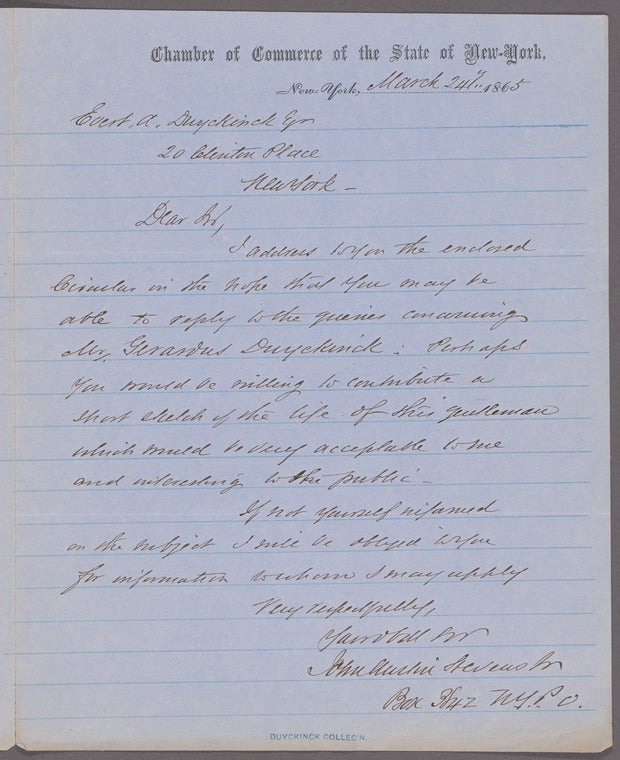 Chamber of Commerce of the State of New-York,
New-York, March 24th 1865
Evert. A. Duyckinck Esqr
20 Clinton Place
New York —
Dear Sir,
I address to you the enclosed
Circular in the hope that you may be
able to reply to the queries concerning
Mr. Gerardus Duyckinck: Perhaps
you would be willing to contribute a
short sketch of the life of this gentleman
which would be very acceptable to me
and interesting to the public —
If not yourself informed
on the subject I will be obliged to you
for information to whom I may apply
Very respectfully,
Your Obdt Svr
John Austin Stevens Jr
Box N.Y.P.O.
DUYCKINCK COLLEC'N.